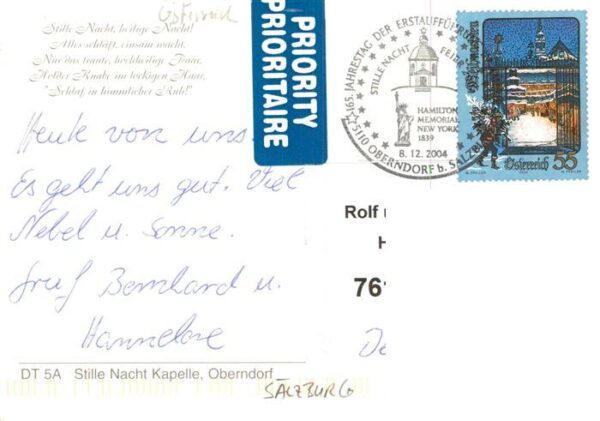 Österreich
Stille Nacht, heilige Nacht!
Alles schläft, einsam wacht,
Nur das traute, hochheilige Paar,
Holder Knabe im lockigen Haar,
"Schlaf in himmlischer Ruh!"
PRIORITY
PRIORITAIRE
165. JAHRESTAG DER ERSTAUFFÜHRUNG
STILLE NACHT
HAMILTON
MEMORIAL
NEW YORK
1839
8. 12. 2004
5110 OBERNDORF b. SALZB
Österreich 55
Heute von uns.
Es geht uns gut. Viel
Nebel u. Sonne.
Gruß Bernhard u.
Hannelore
Rolf u
H
76
De
DT 5A Stille Nacht Kapelle, Oberndorf
SALZBURG